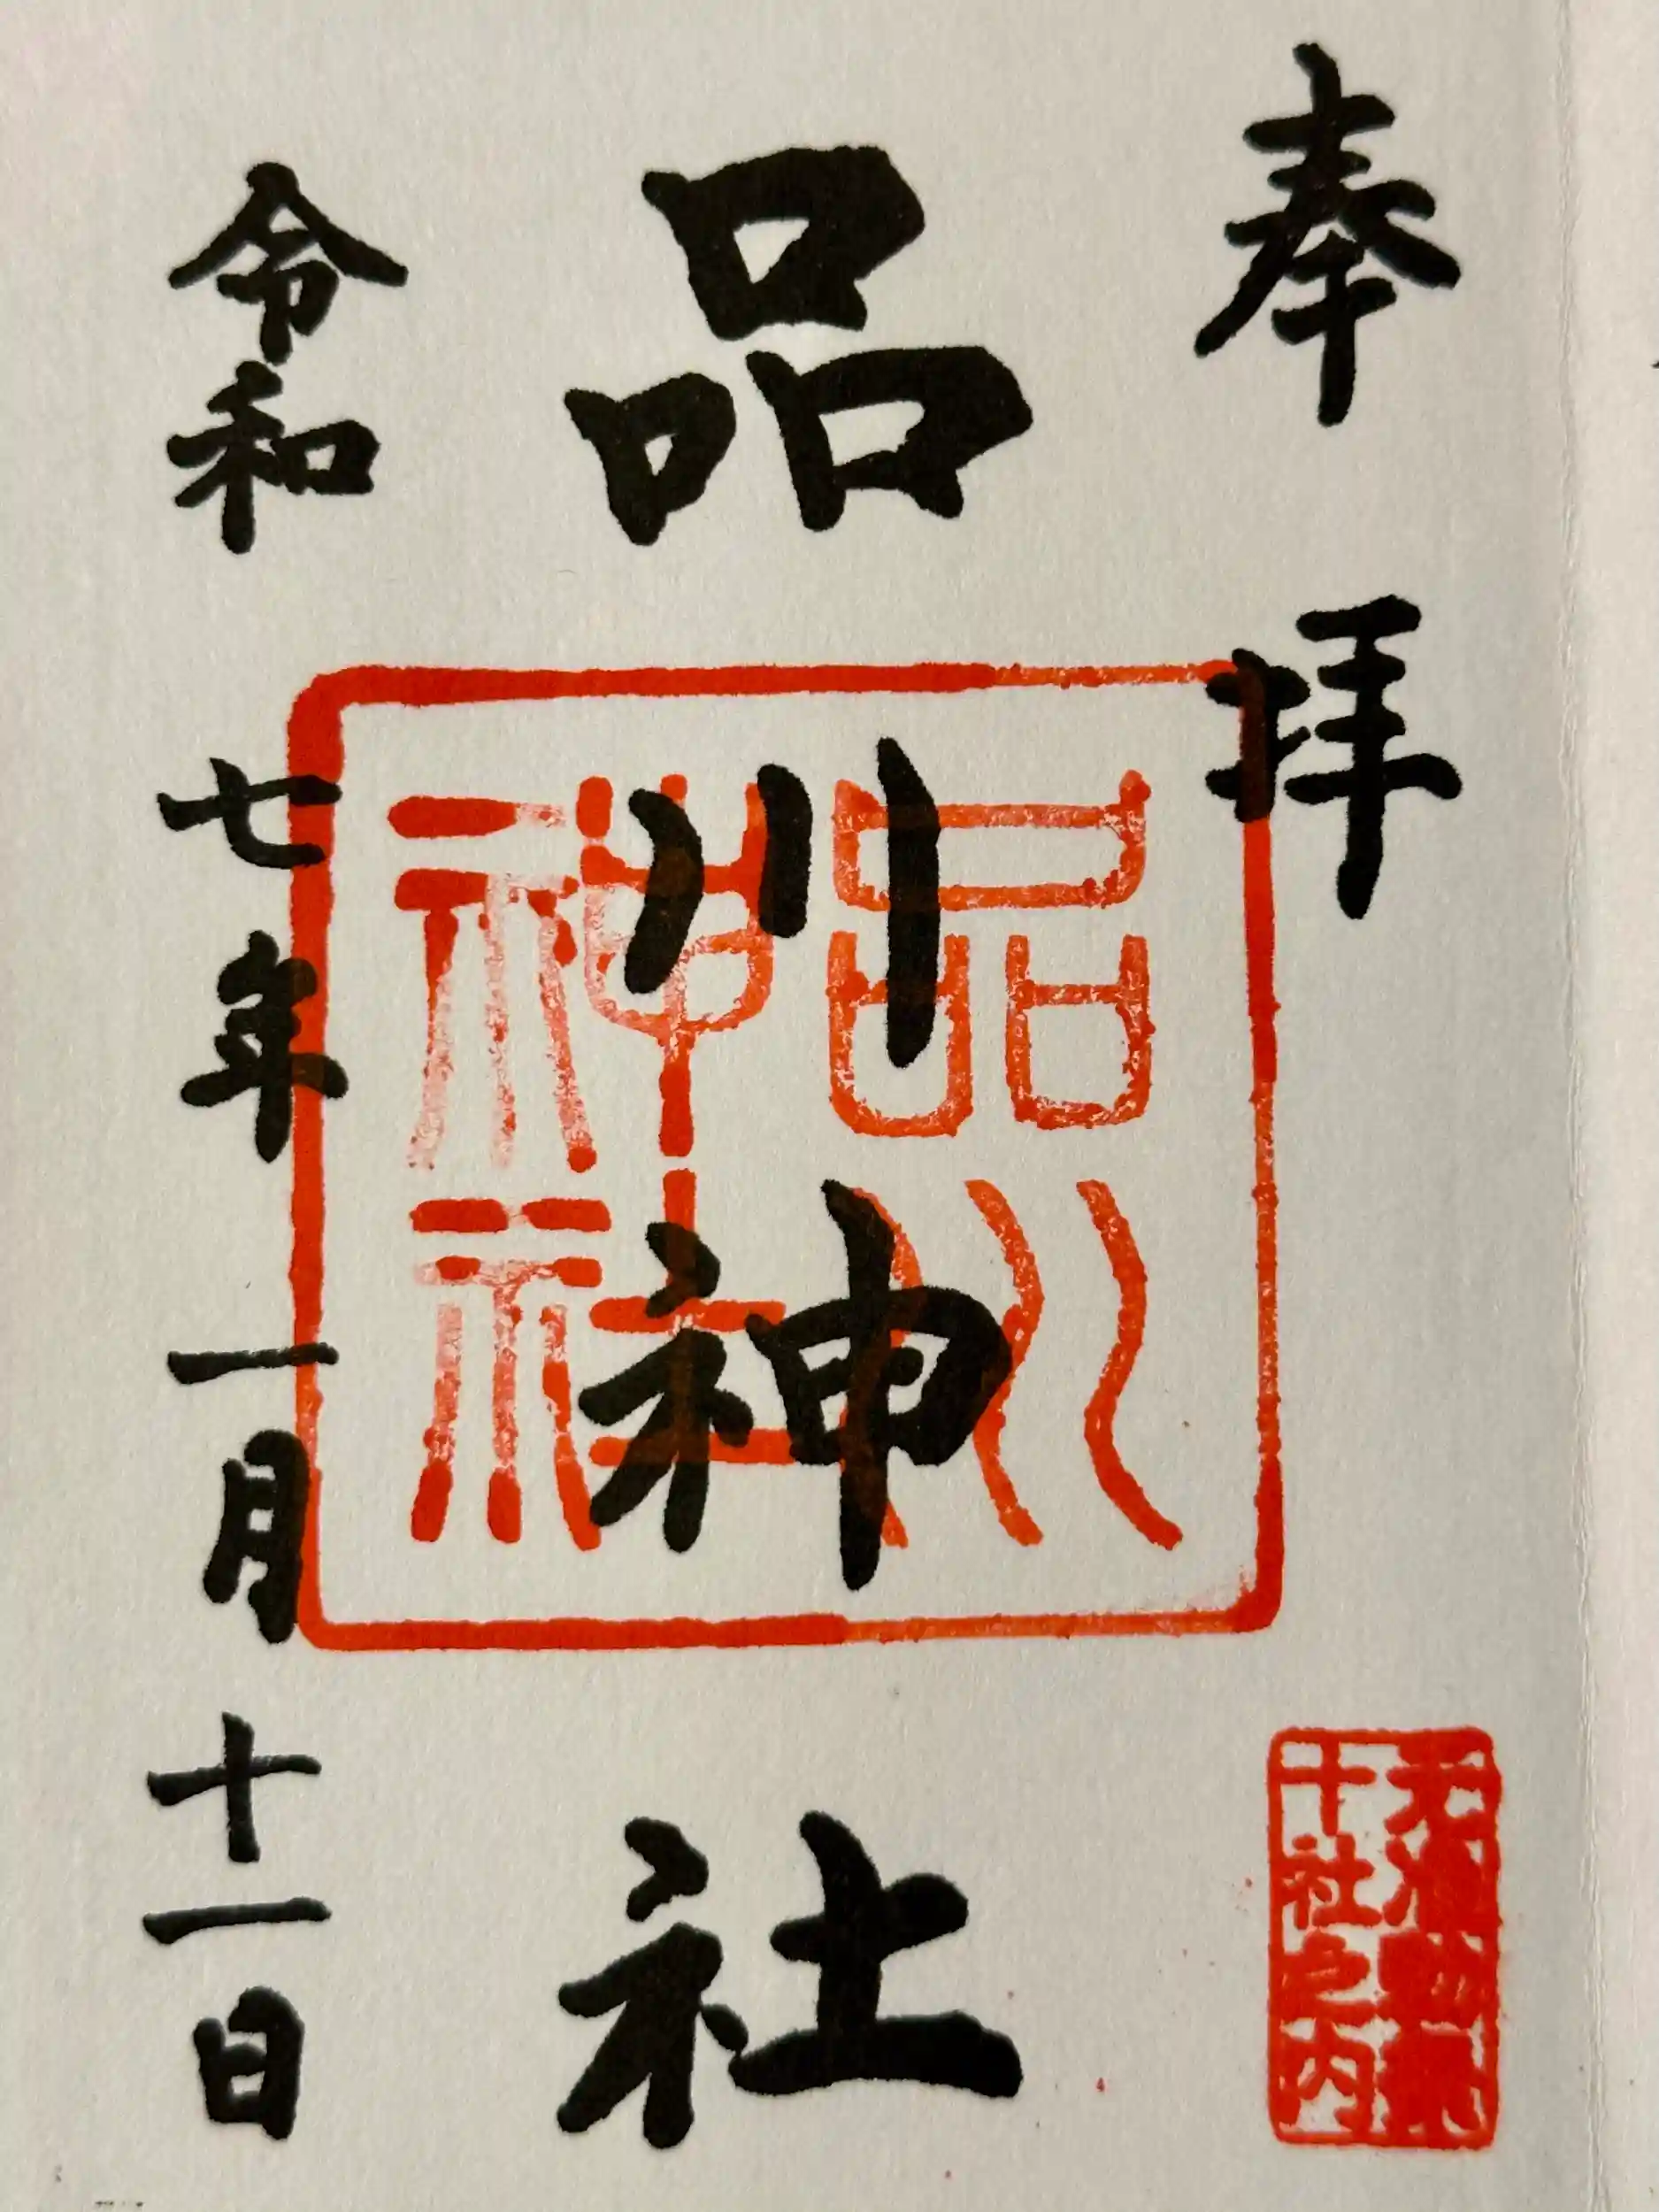 奉拝
十社之内
品川神社
品川
神社
令和七年一月十一日